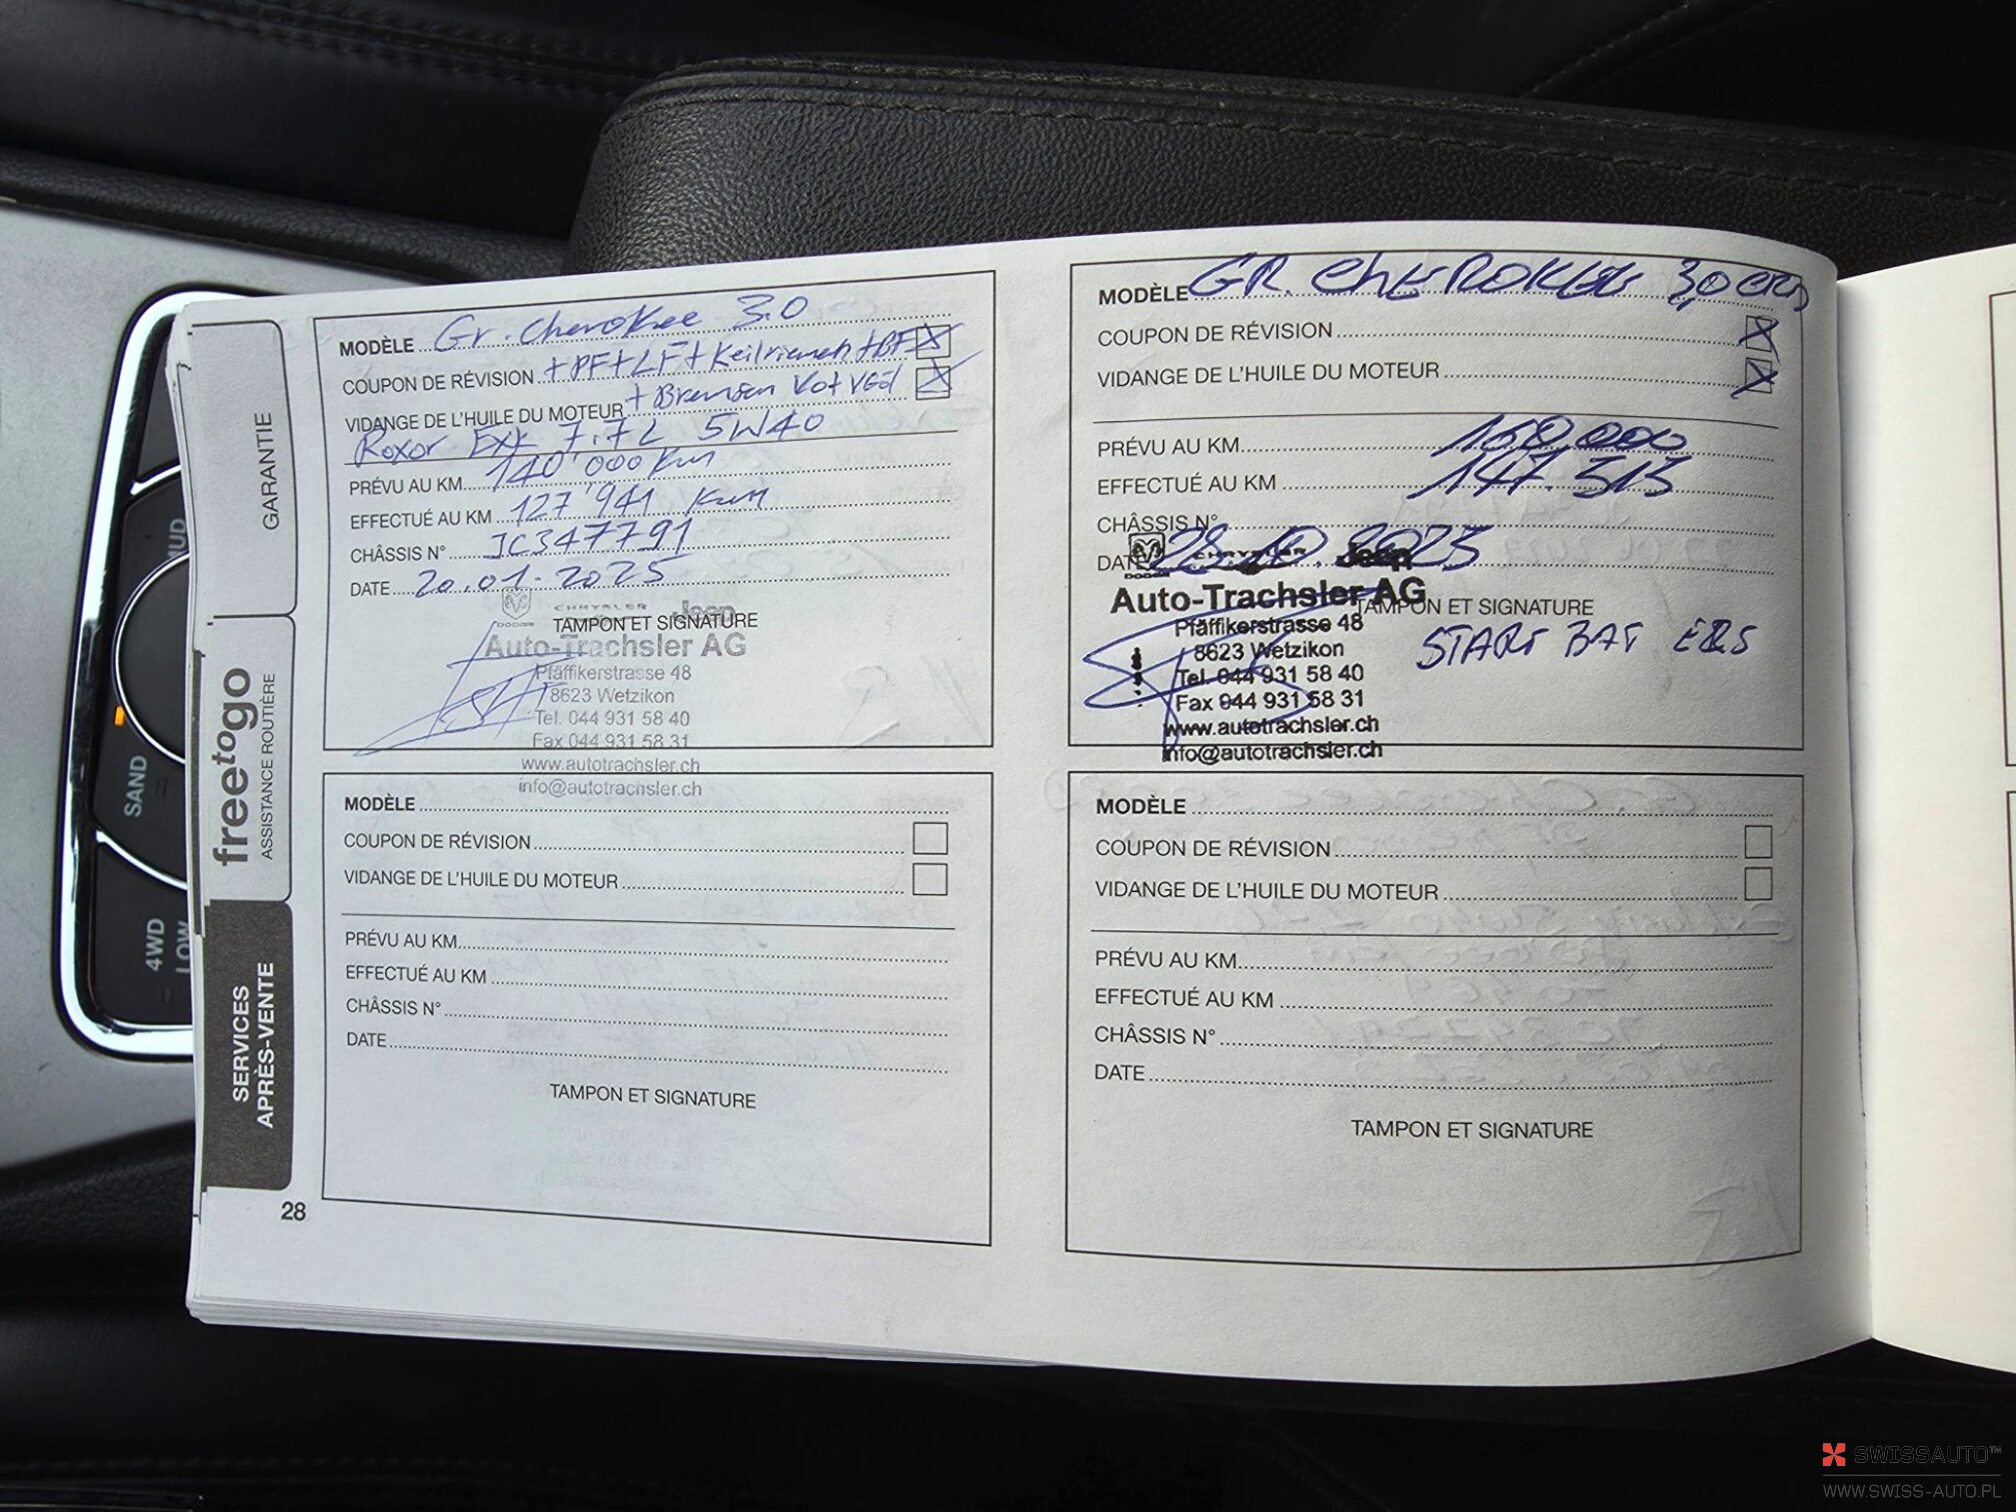 MUD
SAND
4WD
LOW
GARANTIE
freetogo
ASSISTANCE ROUTIÈRE
SERVICES
APRÈS-VENTE
28
MODÈLE Gr. Cherokee 3.0
COUPON DE RÉVISION + PF + LF + Keilriemen + BF
VIDANGE DE L'HUILE DU MOTEUR + Bremsen
Roxor 7.7L 5W40
PRÉVU AU KM 140'000 Km
EFFECTUÉ AU KM 127'941 Km
CHÂSSIS N° JC347791
DATE 20.01.2025
DODGE CHRYSLER Jeep
TAMPON ET SIGNATURE
Auto-Trachsler AG
Pfäffikerstrasse 48
8623 Wetzikon
Tel. 044 931 58 40
Fax 044 931 58 31
www.autotrachsler.ch
info@autotrachsler.ch
MODÈLE GR. CHEROKEE 3,0 CRD
COUPON DE RÉVISION
VIDANGE DE L'HUILE DU MOTEUR
PRÉVU AU KM 160.000
EFFECTUÉ AU KM 147.515
CHÂSSIS N°
DATE 28.10.2025
DODGE CHRYSLER Jeep
Auto-Trachsler AG
TAMPON ET SIGNATURE
Pfäffikerstrasse 48
START BAT ERS
8623 Wetzikon
Tel. 044 931 58 40
Fax 044 931 58 31
www.autotrachsler.ch
info@autotrachsler.ch
MODÈLE
COUPON DE RÉVISION
VIDANGE DE L'HUILE DU MOTEUR
PRÉVU AU KM
EFFECTUÉ AU KM
CHÂSSIS N°
DATE
TAMPON ET SIGNATURE
MODÈLE
COUPON DE RÉVISION
VIDANGE DE L'HUILE DU MOTEUR
PRÉVU AU KM
EFFECTUÉ AU KM
CHÂSSIS N°
DATE
TAMPON ET SIGNATURE
SWISSAUTO™
WWW.SWISS-AUTO.PL